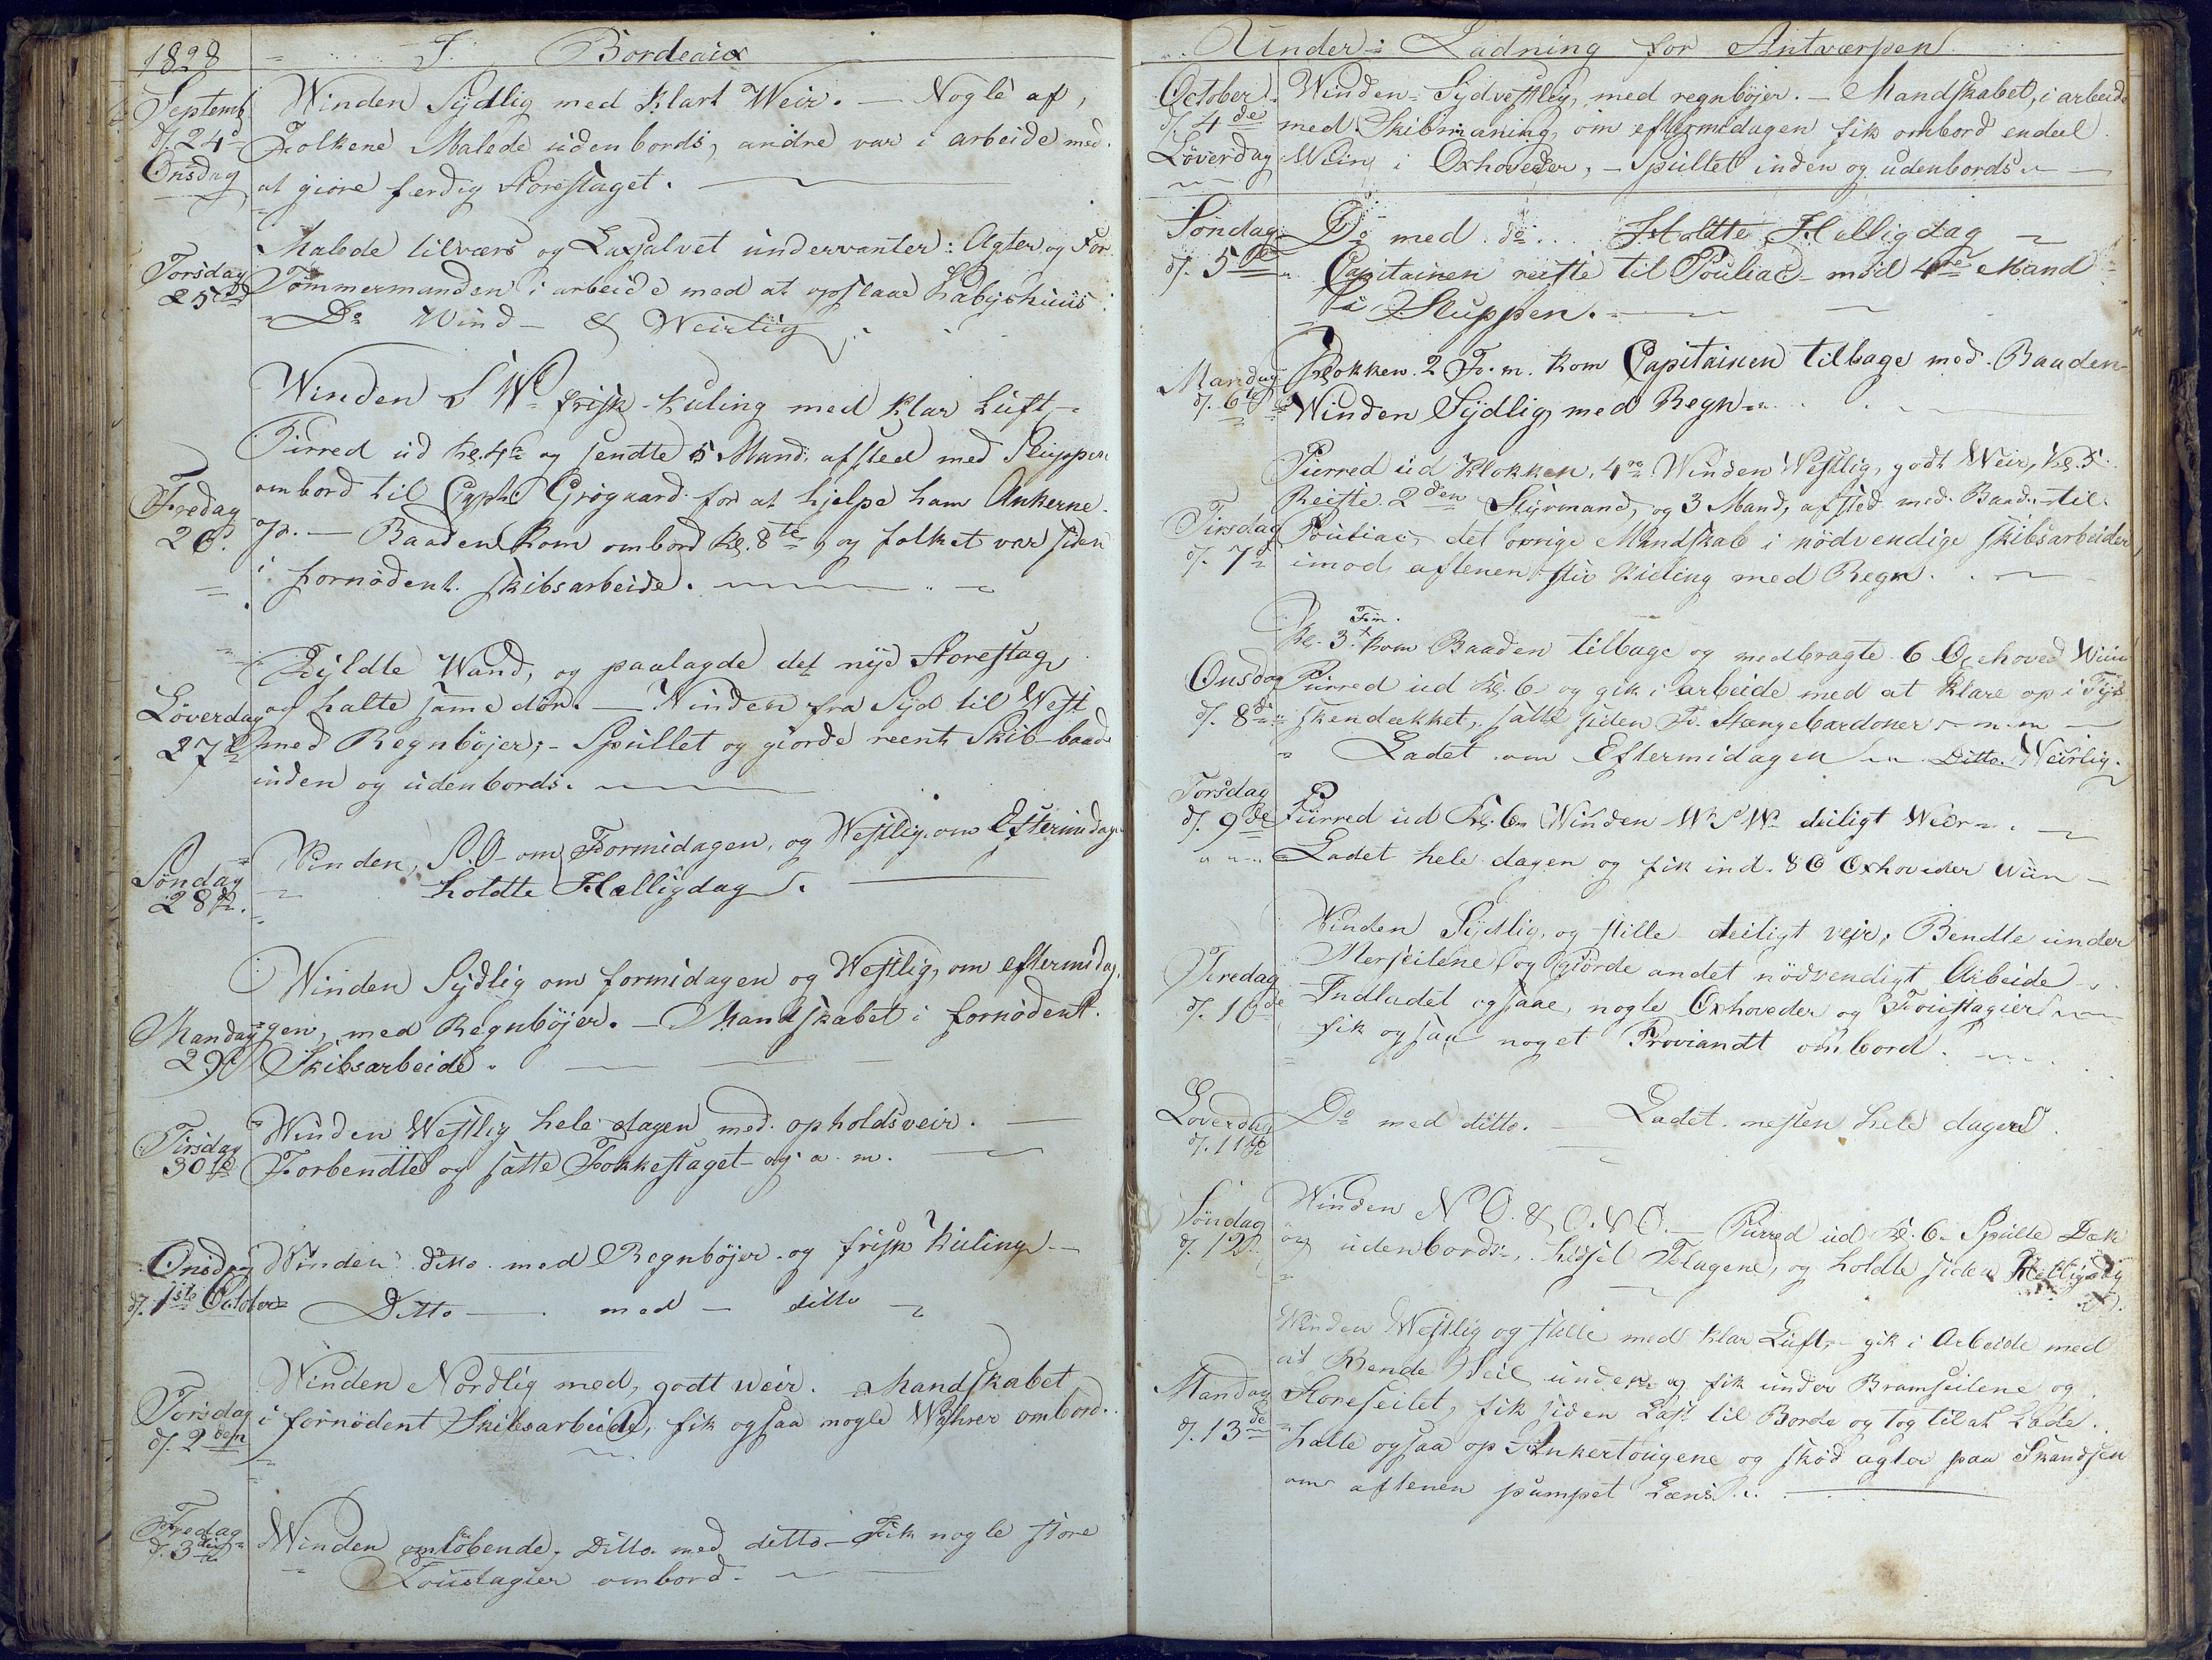 1828 I Bordeaux
Septemb Winden Sydlig med Klart Weir. — Nogle af,
d. 24d Folkene Malede udenbords, andre var i arbeide med
Onsdag at giøre færdig Storestaget.
Malede tilværs og Laxsalvet undervanter: Agter og For
Torsdag Tømmermanden i arbeide med at opslaae Kabyshuus
25de Do Wind — & Weirlig
Winden S W frisk Kuling med klar Luft,
Pirred ud kl. 4 og sendte 5 Mand afsted med Sluppen
ombord til Capt. Grøgaard for at hjelpe ham Ankerne
Fredag op. — Baaden kom ombord kl. 8te, og folket var siden
26d i fornødent skibsarbeide.
Fyldte Wand, og paalagde det nye Storestag
Løverdag og halte same dør. — Winden fra Syd til West
27de med Regnbøjer; — Spullet og giorde reent Skib — baade
inden og udenbords.
Søndag Winden, S.O. om Formidagen, og Westlig om Eftermidage
28de holdte Helligdag.
Winden Sydlig om formidagen og Westlig, om eftermidag,
Mandag gen, med Regnbøjer. — Mandskabet i fornødent.
29d Skibsarbeide.
Tirsdag Winden Westlig hele dagen med opholdsveir. —
30te Forbendte og satte Fokkestaget og a. m.
Onsdag Winden ditto med Regnbøjer og frisk kuling —
d. 1ste October Ditto — med — ditto
Winden Nordlig med, godt weir. Mandskabet
Torsdag i fornødent Skibsarbeide, fik ogsaa nogle Wahrer ombord.
d. 2den
Fredag Winden omløbende, Ditto med ditto — Fik nogle store
d. 3die Foustagier ombord.
Under Ladning for Antwærpen
October Winden Sydvestlig, med regnbøjer. — Mandskabet, i arbeide
d. 4de med Skibmaning, om eftermidagen fik ombord endeel
Løverdag Wiin i Oxhoveder, — Spullet inden og udenbords
Søndag Do med do. Holdte Helligdag
d. 5te Capitainen reiste til Pouliac med 4re Mand
i Sluppen.
Mandag Klokken 2 Fr. m. kom Capitainen tilbage med Baaden
d. 6te Winden Sydlig, med Regn
Purred ud Klokken 4re Winden Westlig, godt Weir, kl. 5
Reiste 2den Styrmand, og 3 Mand, afsted med Baaden til
Tirsdag Pouliac, det øvrige Mandskab i nødvendige skibsarbeider
d. 7de imod aftenen stiv kuling med Regn.
Fm.
Kl. 3 kom Baaden tilbage og medbragte 6 Oxehoved Wiin
Onsdag Purred ud Kl. 6 og gik i arbeide med at klare op i Tys
d. 8de skendækket, satte siden Fr. Stængebardoner m. m
Ladet om Eftermidagen — Ditto Weirlig.
Torsdag
d. 9de Purred ud Kl. 6 Winden W S W deiligt Weir
Ladet hele dagen og fik ind 86 Oxhoveder Wiin —
Winden Sydlig, og stille deiligt vejr, Bendte under
Fredag Merseilene og giorde andet nödvendigt Arbeide
d. 10de Indladet ogsaae, nogle Oxhoveder og Foustagier
fik ogsaa noget Proviandt ombord.
Løverdag Do med ditto. — Ladet nesten hele dagen.
d. 11te
Søndag Winden N O. & O.N O. — Purred ud Kl. 6 Spulte Dæk
d. 12 og udenbords, hissed Flagene, og holdte siden Helligdag
Winden Westlig og stille med klar Luft, — gik i Arbeide med
at Bende Seil under og fik under Bramseilene og
Mandag Storeseilet, fik siden Last til Borde og tog til at Lade.
d. 13de halte ogsaa op Ankertougene og skød agter paa Skandsen
om aftenen pumpet Læns.